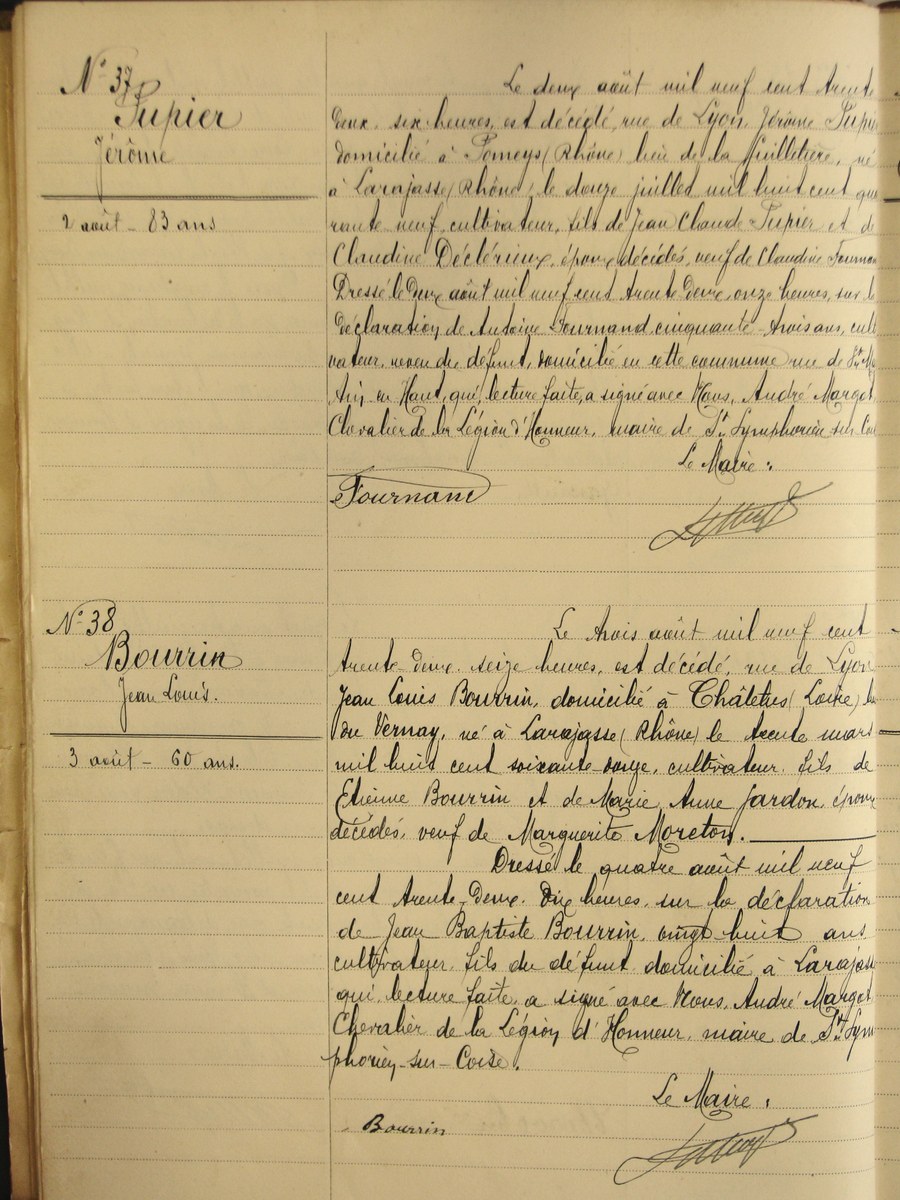 N° 37
Pupier
Jérôme
2 août - 83 ans
Le deux août mil neuf cent trente
deux, six heures, est décédé, rue de Lyon, Jérôme Pupi
domicilié à Pomeys (Rhône) lieu de la , né
à Larajasse (Rhône) le douze juillet mil huit cent qua
rante neuf, cultivateur, fils de Jean Claude Pupier et de
Claudine Déclérieux, époux décédés, veuf de Claudine Fournan
Dressé le deux août mil neuf cent trente deux, onze heures, sur la
déclaration de Antoine Fournand, cinquante-trois ans, culti
vateur, neveu du défunt, domicilié en cette commune rue de
en Haut, qui, lecture faite, a signé avec Nous, André Margot
Chevalier de la Légion d'Honneur, maire de St Symphorien sur Coi
Le Maire :
Fournand
N° 38
Bourrin
Jean Louis.
3 août - 60 ans.
Le trois août mil neuf cent
trente deux, seize heures, est décédé, rue de Lyon
Jean Louis Bourrin, domicilié à Châtelus (Loire) lieu
du Vernay, né à Larajasse (Rhône) le trente mars
mil huit cent soixante douze, cultivateur, fils de
Etienne Bourrin et de Marie Anne Jardon, époux
décédés, veuf de Marguerite Moreton.
Dressé le quatre août mil neuf
cent trente deux, dix heures, sur la déclaration
de Jean Baptiste Bourrin, vingt huit ans
cultivateur, fils du défunt domicilié à Larajass
qui, lecture faite, a signé avec Nous, André Margot
Chevalier de la Légion d'Honneur, maire de St Sym
phorien-sur-Coise.
Le Maire :
Bourrin